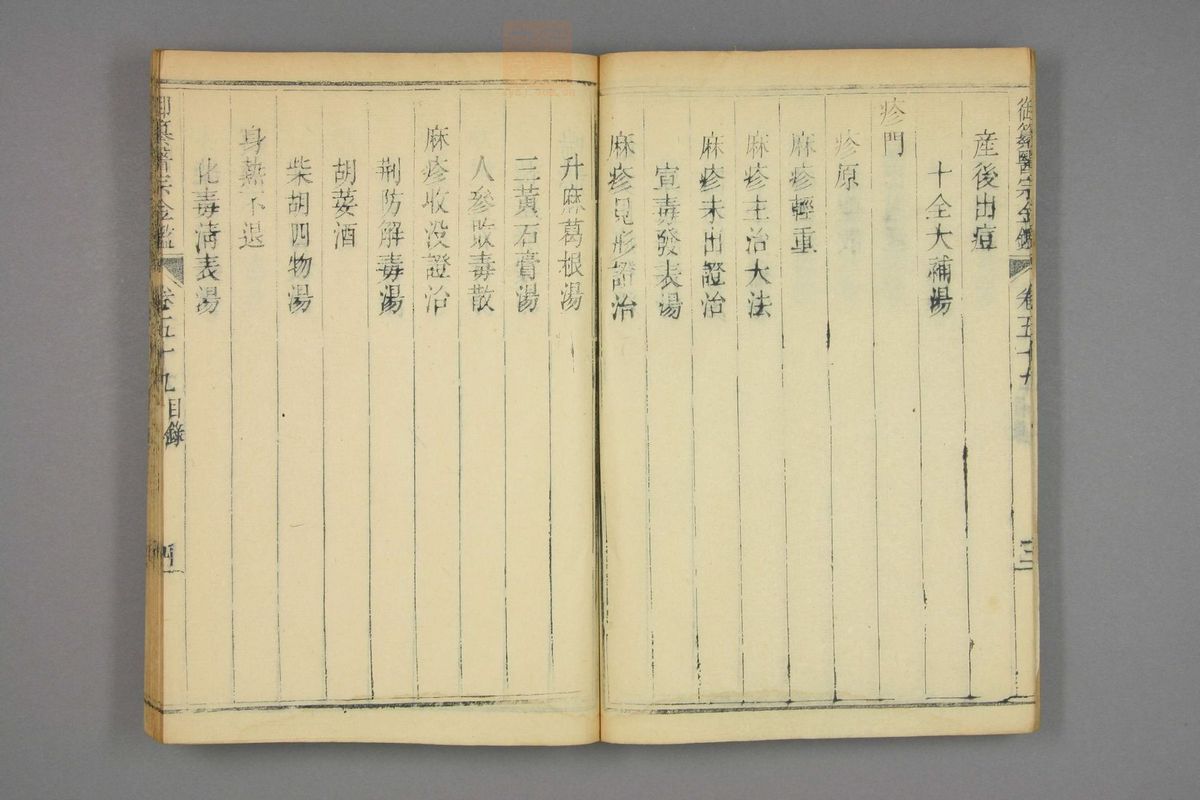 御纂醫宗金鑑 卷五十九 三
產後出痘
十全大補湯
疹門
疹原
麻疹輕重
麻疹主治大法
麻疹未出證治
宣毒發表湯
麻疹見形證治
升麻葛根湯
三黃石膏湯
人參敗毒散
麻疹收没證治
荆防解毒湯
胡荽酒
柴胡四物湯
身熱不退
化毒清表湯
御纂醫宗金鑑 卷五十九 目錄 四